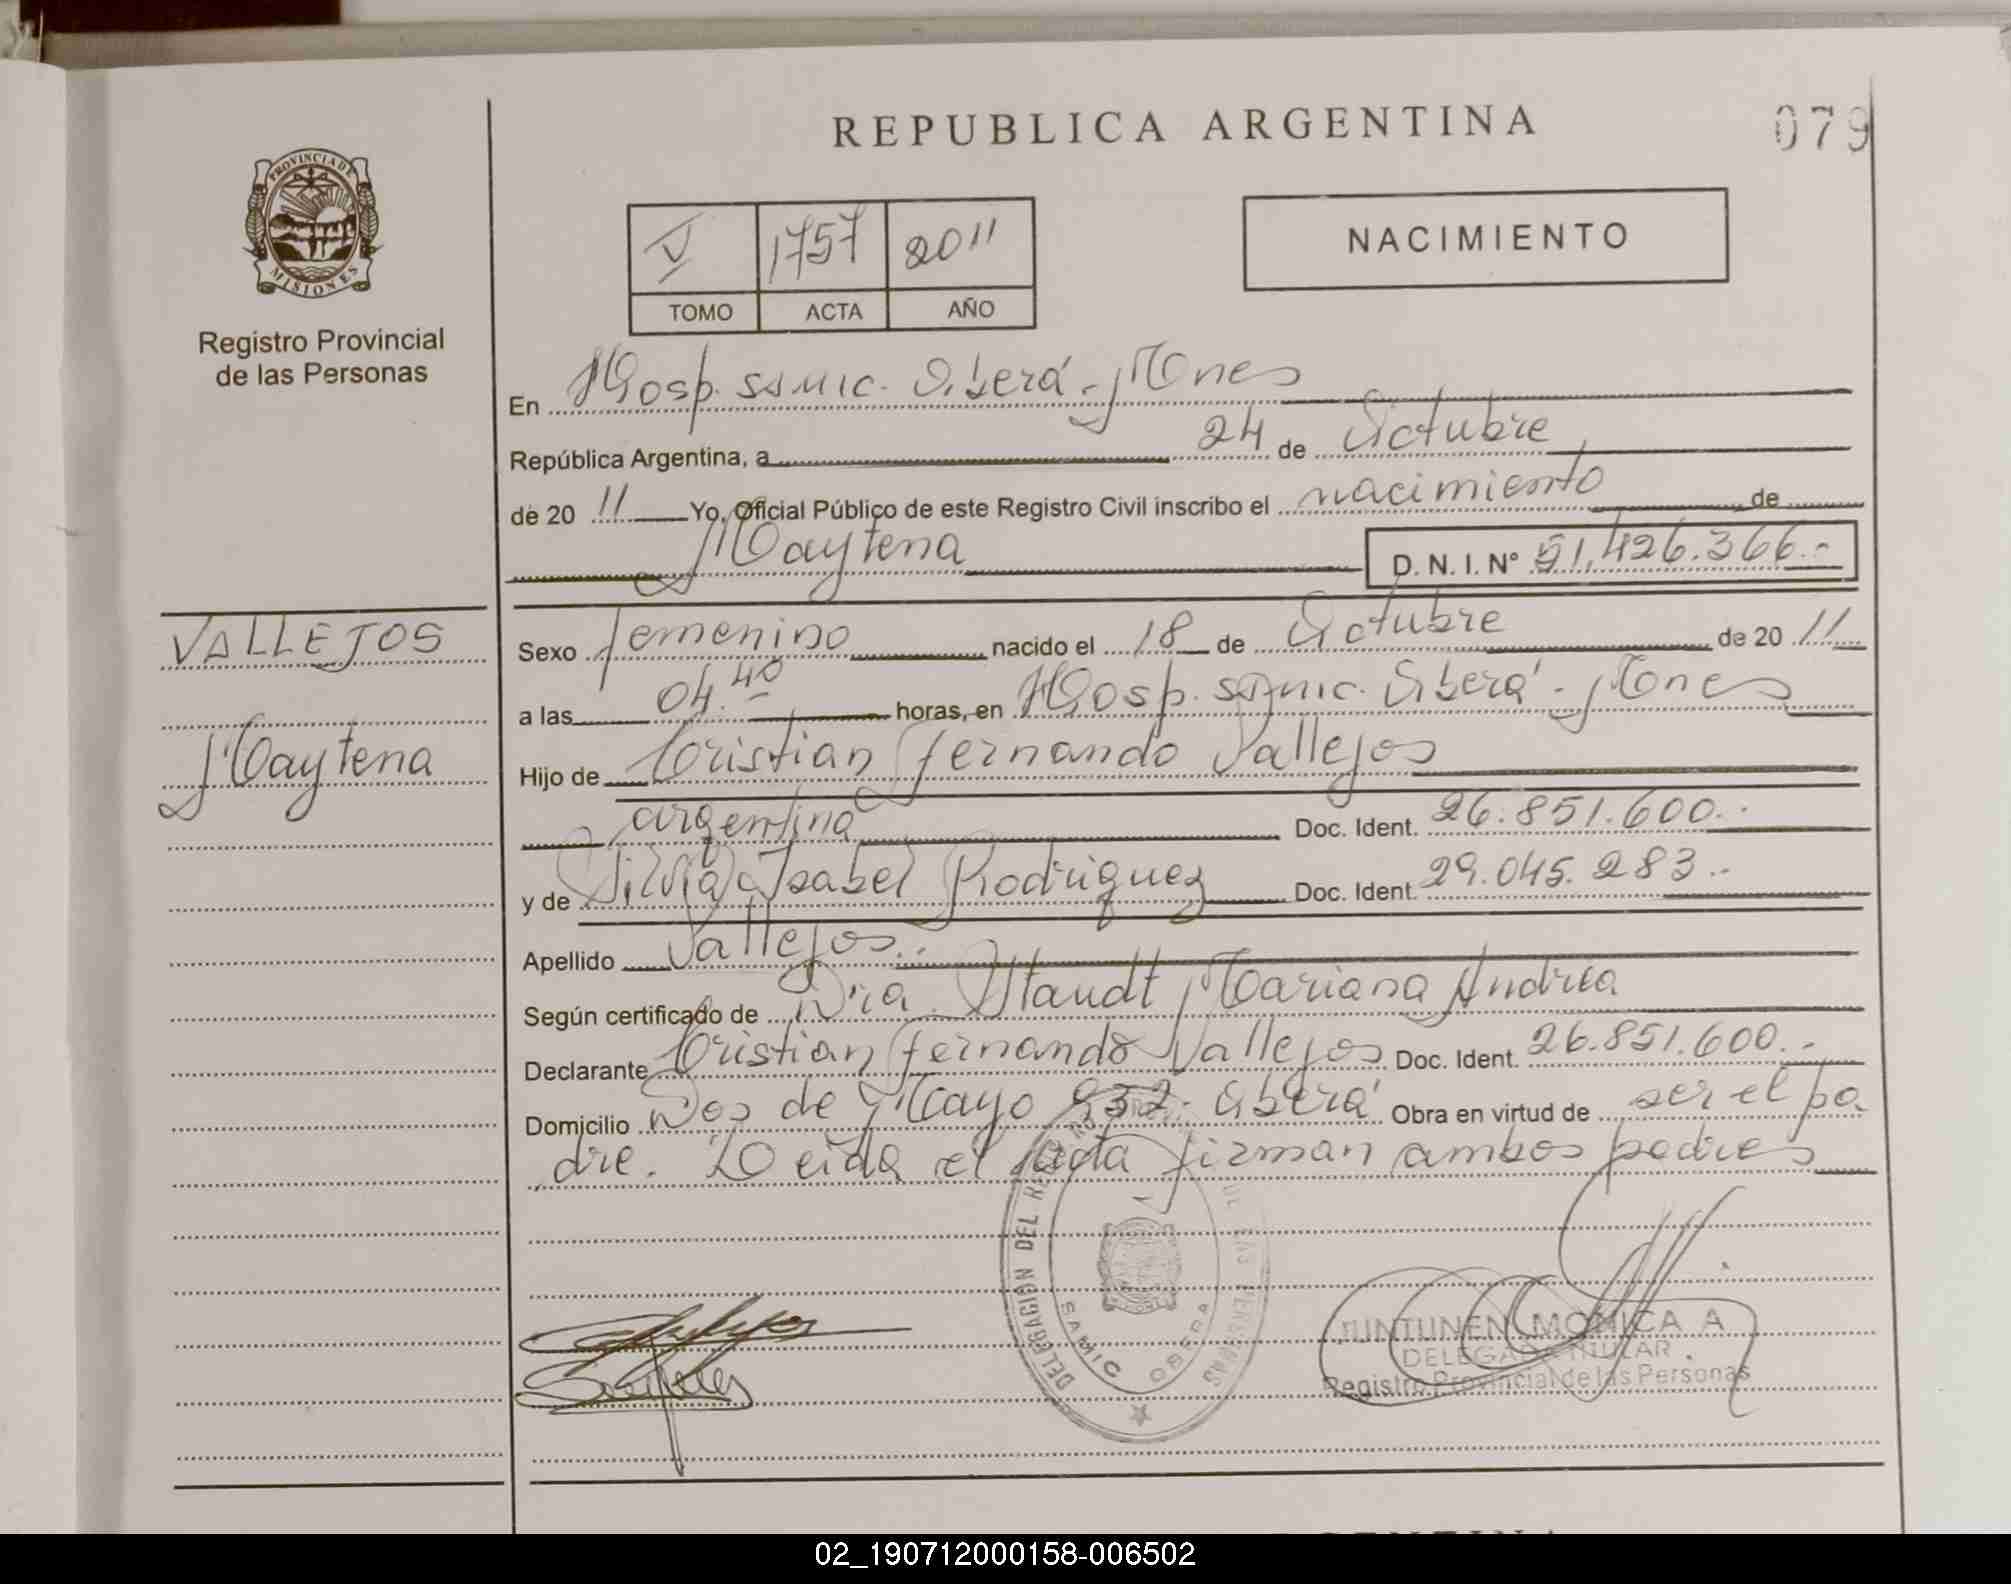 REPUBLICA ARGENTINA
079
PROVINCIA DE
MISIONES
Registro Provincial
de las Personas
V 1757 2011
TOMO ACTA AÑO
NACIMIENTO
En Hosp. SAMIC. Oberá - Mnes
República Argentina, a 24 de Octubre
de 20 11 Yo, Oficial Público de este Registro Civil inscribo el nacimiento de
Maytena D. N. I. Nº 51.426.366.-
VALLEJOS
Maytena
Sexo femenino nacido el 18 de Octubre de 20 11
a las 04.40 horas, en Hosp. SAMIC. Oberá - Mnes
Hijo de Cristian Fernando Vallejos
argentina Doc. Ident. 26.851.600.-
y de Silvia Isabel Rodriguez Doc. Ident. 29.045.283.-
Apellido Vallejos.-
Según certificado de Dra. Staudt Mariana Andrea
Declarante Cristian Fernando Vallejos Doc. Ident. 26.851.600.-
Domicilio Dos de Mayo 932. Oberá Obra en virtud de ser el pa
dre. Leida el acta firman ambos padres
DELEGACION DEL REGISTRO DE LAS PERSONAS
SAMIC OBERA
JUNTUNEN MONICA A
DELEGADA TITULAR
Registro Provincial de las Personas
02_190712000158-006502